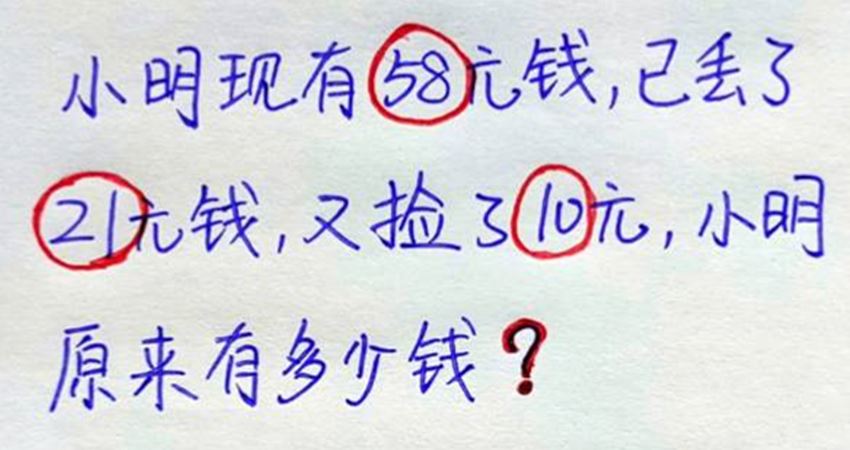 小明现有58元钱,已丢了
21元钱,又捡了10元,小明
原来有多少钱?